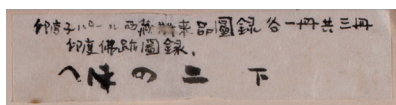 印度ネパール西蔵将来品圖録 各一冊共三冊
印度佛跡圖録.
への二 下